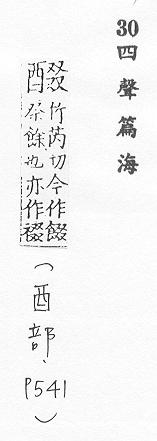 30 四聲篇海
醊 竹芮切今作餟
祭餘也亦作
(酉部、P541)